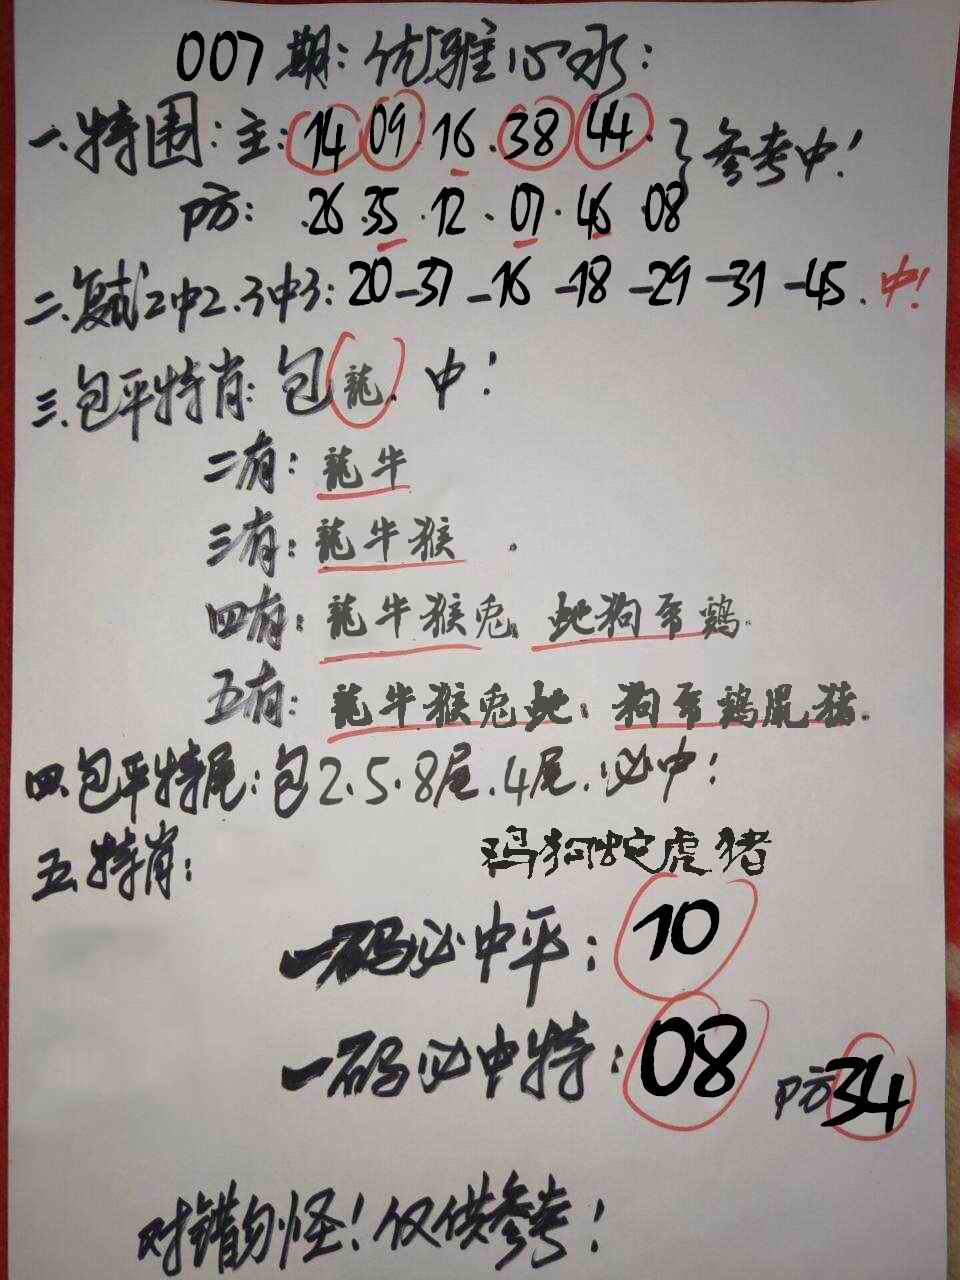 007期:优雅心水:
一.特围:主:14 09 16.38 44.}参考中!
防:.26.35.12.07.46 08
二.复式2中2.3中3:20-37-16-18-29-31-45.中!
三.包平特肖:包龍.中!
二有:龍牛
三有:龍牛猴.
四有:龍牛猴兎.蛇狗羊鷄.
五有:龍牛猴兎蛇.狗羊鷄鼠猪.
四.包平特尾:包2.5.8尾.4尾.必中!
五.特肖: 鸡狗蛇虎猪
一码必中平:10
一码必中特:08 防34
对错勿怪!仅供参考!